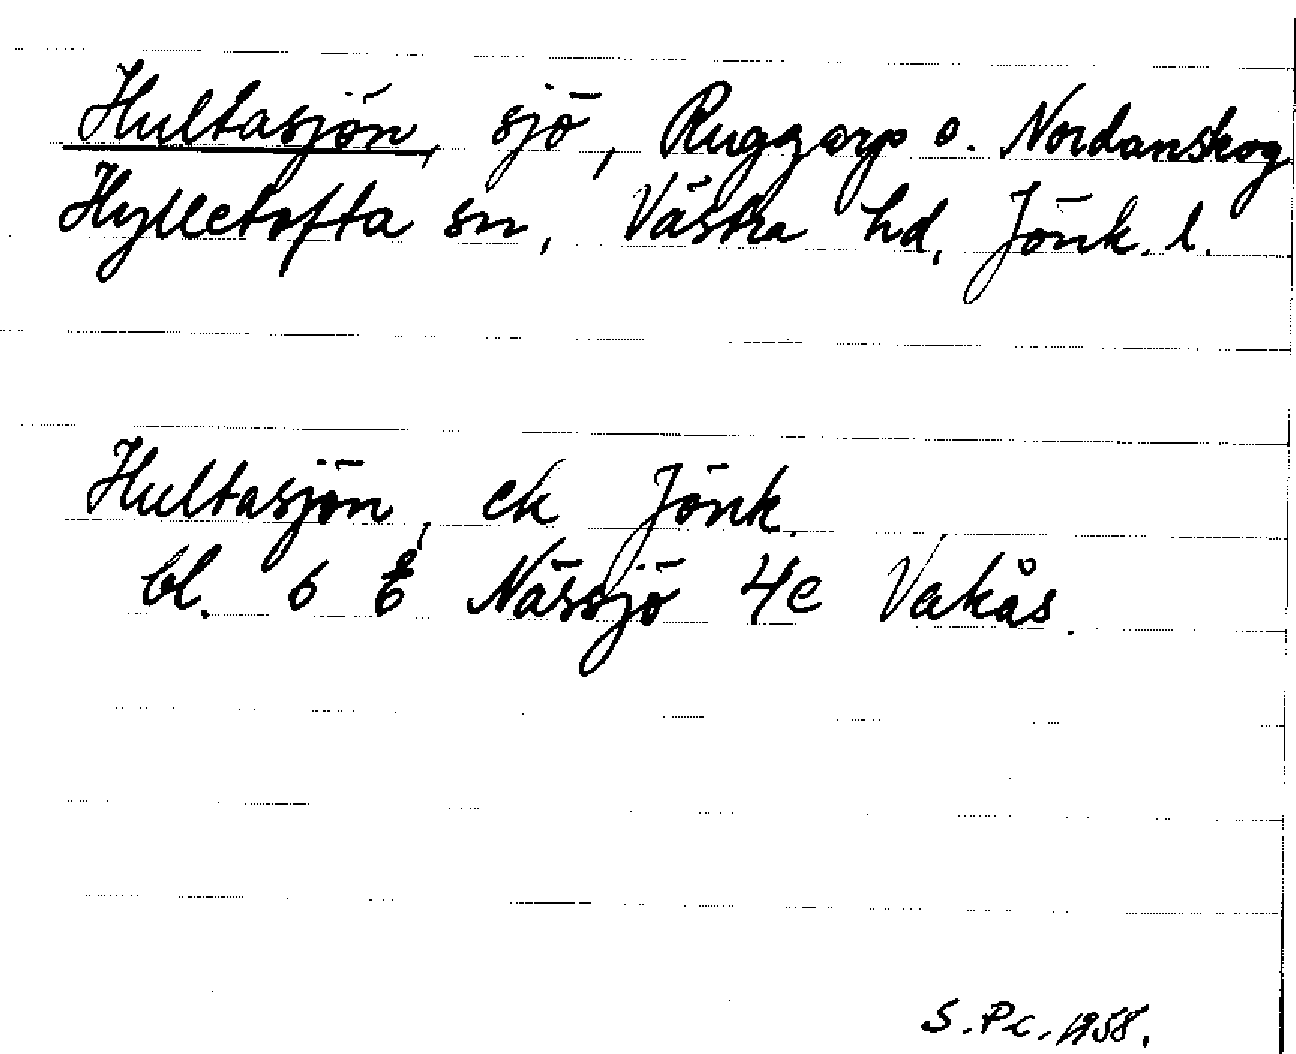 Hultasjön, sjö, Ruggarp o. Nordanskog
Hylletofta sn, Västra hd, Jönk. l.
Hultasjön, ek Jönk.
bl. 6 E Nässjö 4e Vakås.
S.Pc. 1958.